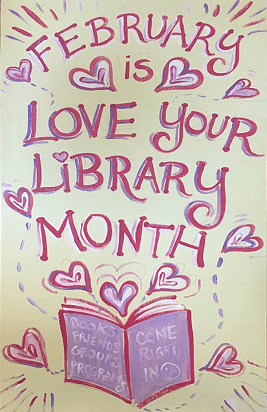 FEBRUARY
is
LOVE YOUR
LiBRARY
MONTH
BOOKS
FRIENDS
GROUPS
PROGRAMS
COME
RIGHT
IN